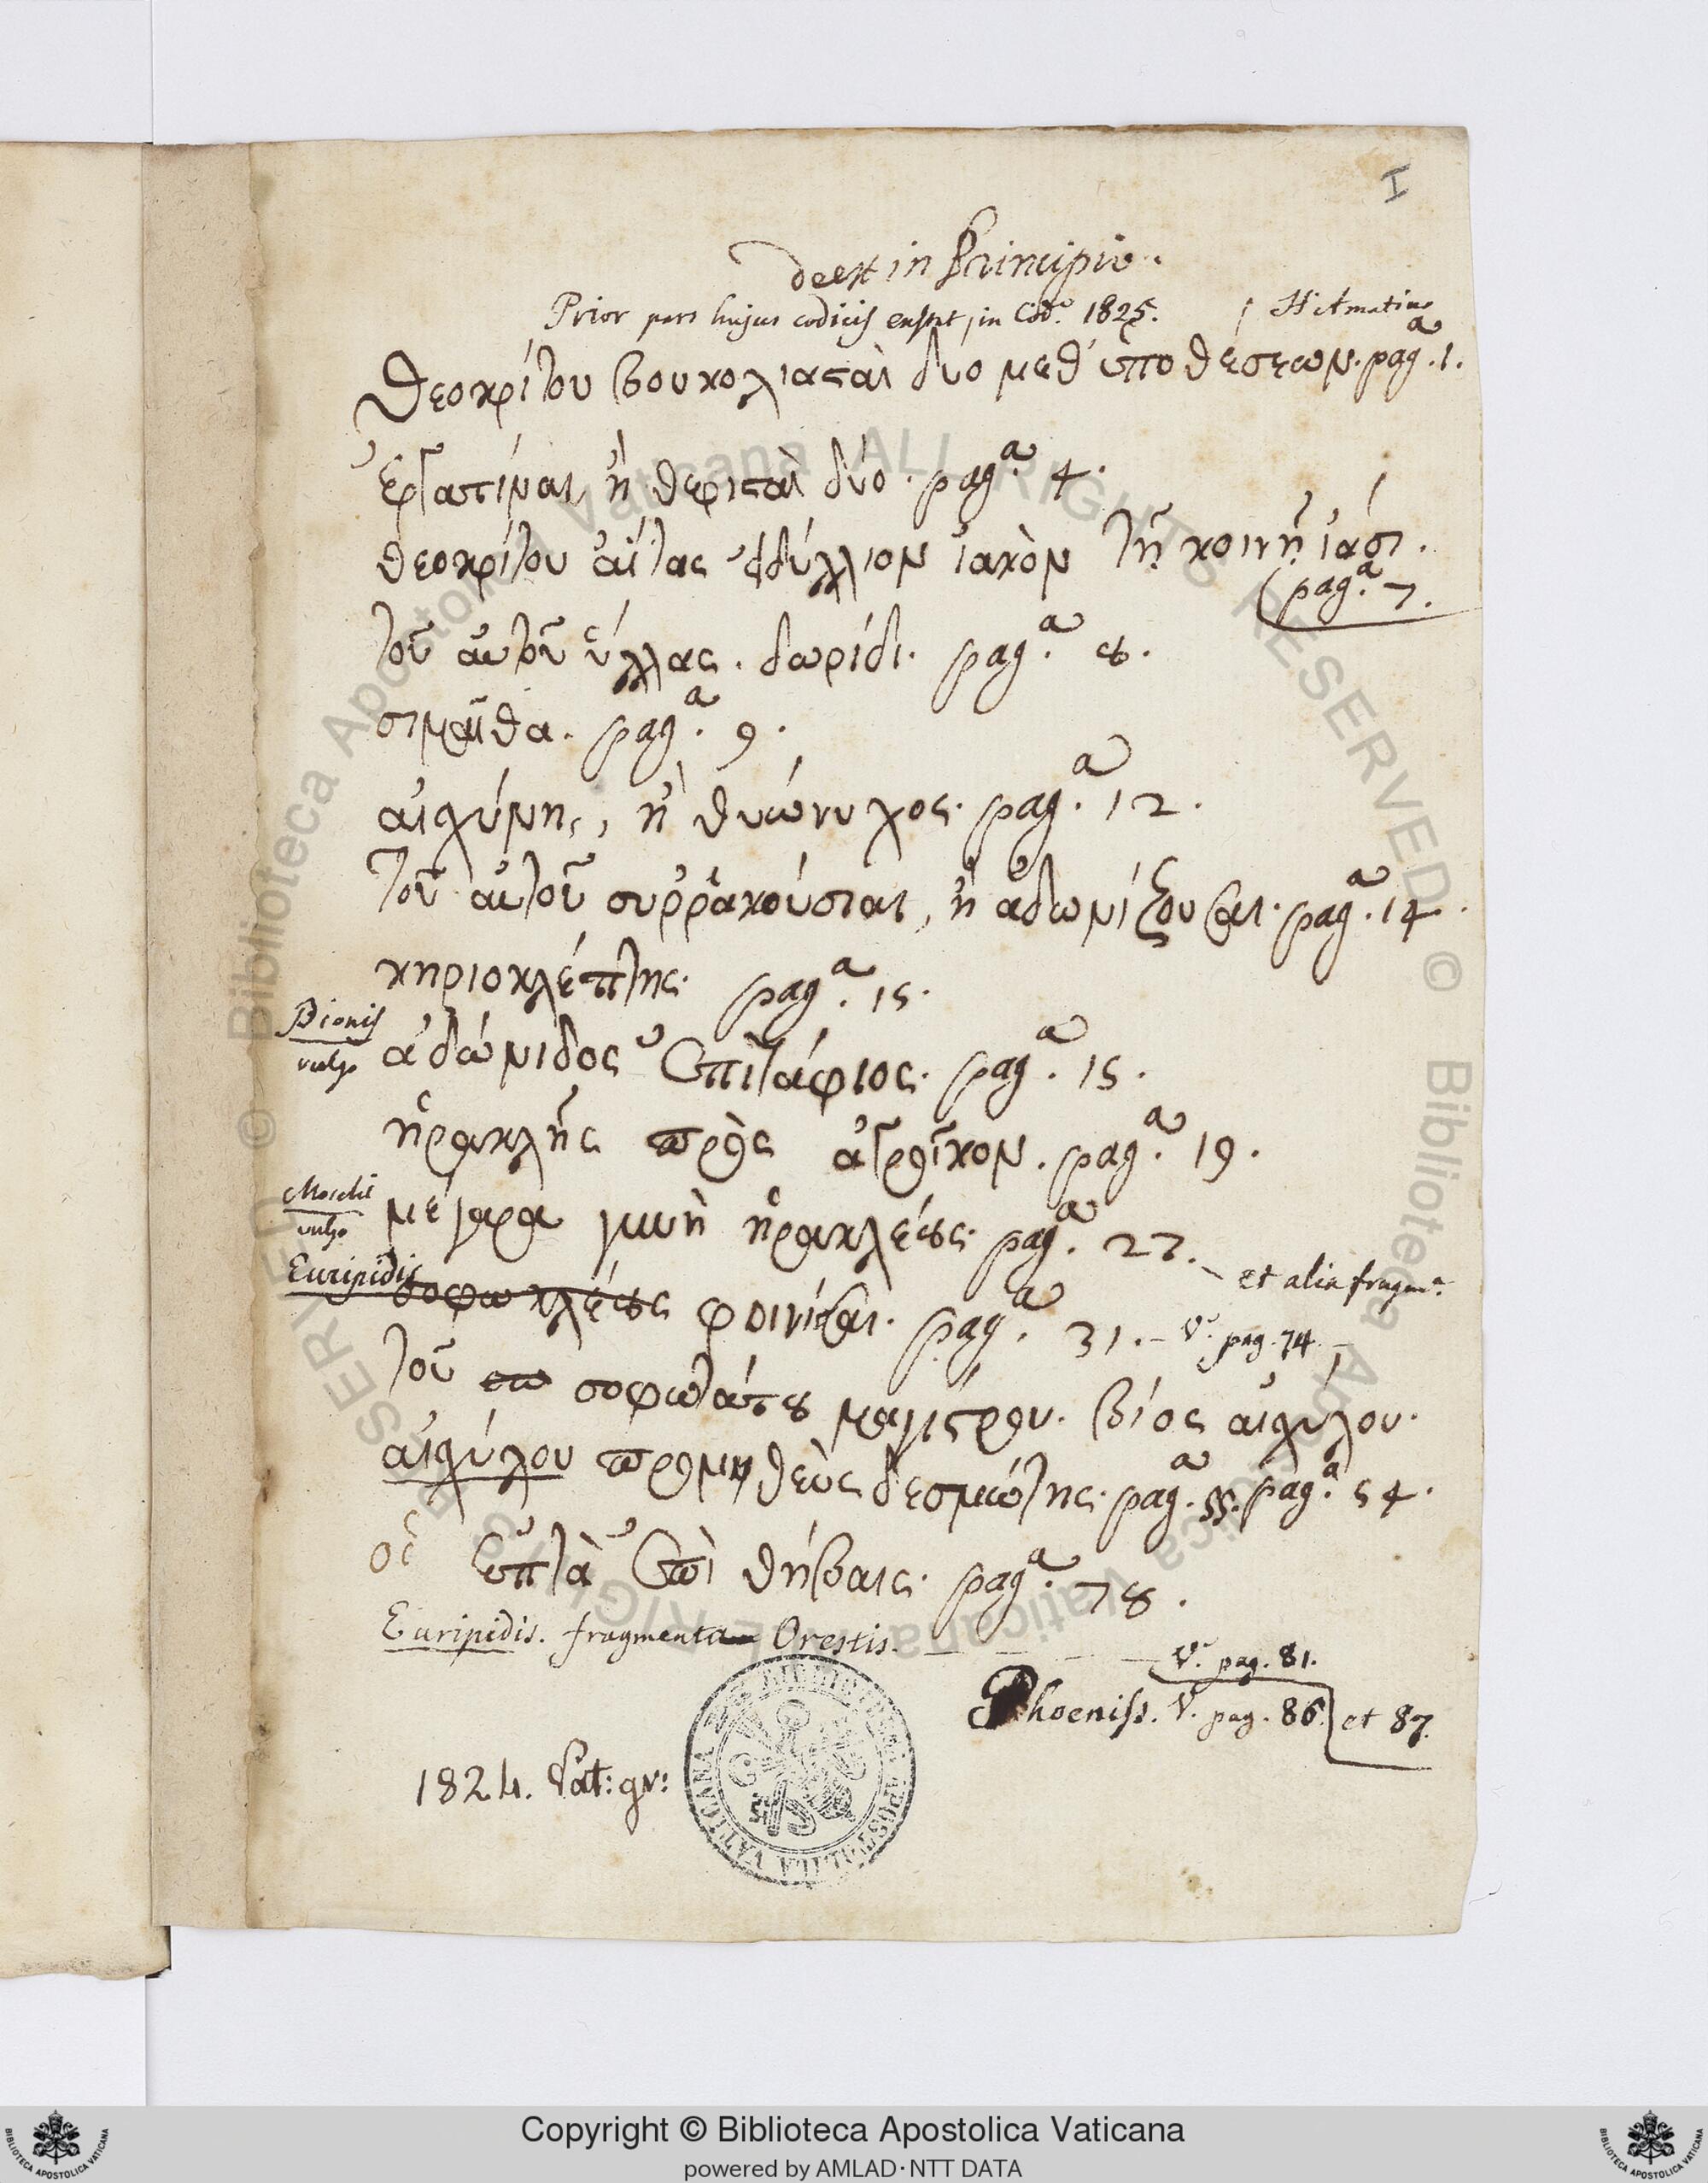 I
deest in Principio.
Prior pars hujus codicis exstat in Cod. 1825.
Θεοκρίτου βουκολιασταὶ δυο μεθ' ὑποθέσεων. pagª. 1.
ἐργατίναι ἢ θερισταὶ δύο. pagª. 4.
θεοκρίτου ἀΐτας εἰδύλλιον ἰακὸν τῇ κοινῇ ἰάδι.
pagª. 7.
τοῦ αὐτοῦ ὕλλας. δωρίδι. pagª. 8.
σιμαῖθα. pagª. 9.
αἰσχύνης, ἢ θυώνυχος. pagª. 12.
τοῦ αὐτοῦ συῤῥακούσιαι, ἢ ἀδωνίζουσαι. pagª. 14.
κηριοκλέπτης. pagª. 15.
Bionis
vulgo
ἀδώνιδος ἐπιτάφιος. pagª. 15.
ἡρακλῆς πρὸς ἀγροῖκον. pagª. 19.
Moschi
vulgo
μεγαρα γυνὴ ἡρακλέους. pagª. 27. et alia fragm.
Euripidis
σοφωκλέους φοινίσσαι. pagª. 31. – V. pag. 74
τοῦ σοφωτάτου μαγίστρου. βίος αἰσχύλου.
αἰσχύλου προμηθεὺς δεσμώτης. pagª. 55. pagª. 54.
ἑπτὰ ἐπὶ θήβαις. pagª. 78.
Euripidis. fragmenta Orestis. V. pag. 81.
Phoeniss. V. pag. 86. et 87.
1824. Vat: gr:
Copyright © Biblioteca Apostolica Vaticana
powered by AMLAD·NTT DATA